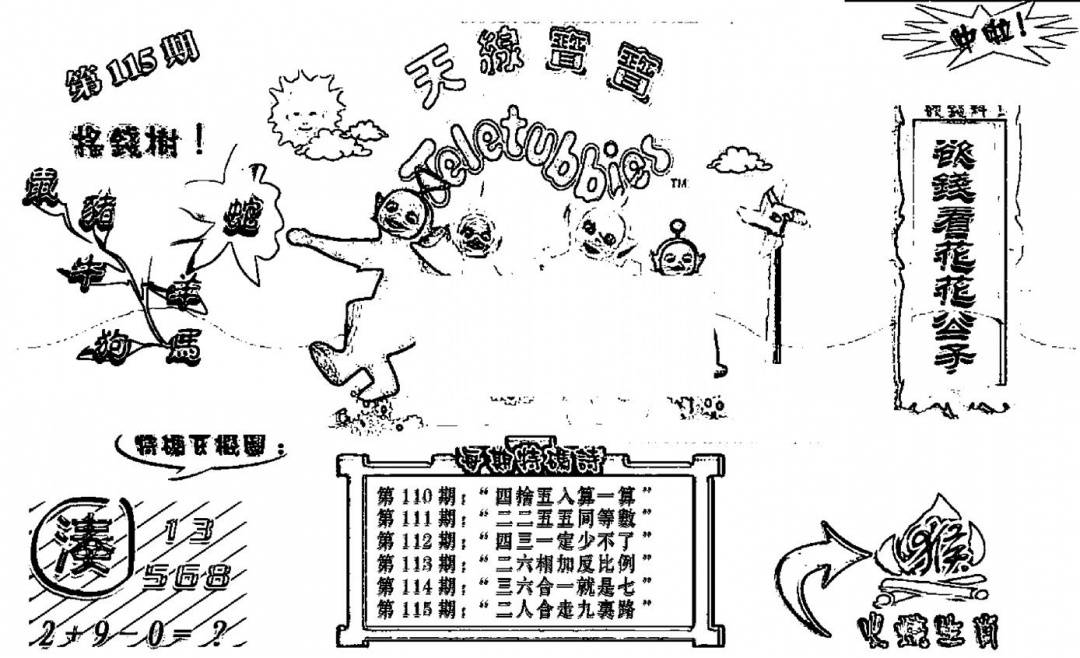 第115期
天線寶寶
Teletubbies
TM
中啦！
搖錢樹！
鼠
豬
蛇
牛
羊
狗
馬
欲錢料！
欲錢看花花公子
每期特碼詩
第110期：“四捨五入算一算”
第111期：“二二五五同等數”
第112期：“四三一定少不了”
第113期：“二六相加反比例”
第114期：“三六合一就是七”
第115期：“二人合走九裏路”
湊
13
568
2+9-0=?
猴
火燒生肖